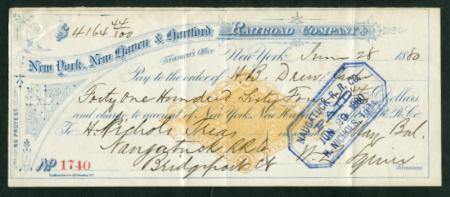 $4164 44/100
New York, New Haven & Hartford Railroad Company.
Treasurer's Office
New York June 28 1880
Pay to the order of H. B. Drew,
Forty one Hundred Sixty Four 44/100 Dollars
and charge to receipt of New York, New R.R. Co.
To H. Nichols Treas May Bal.
Naugatuck RR Co
Bridgeport Ct
Treasurer.
NO PROTEST
No 1740
NAUGATUCK R.R. CO.
PAID
JUN 29 1880
H. NICHOLS, TREAS.